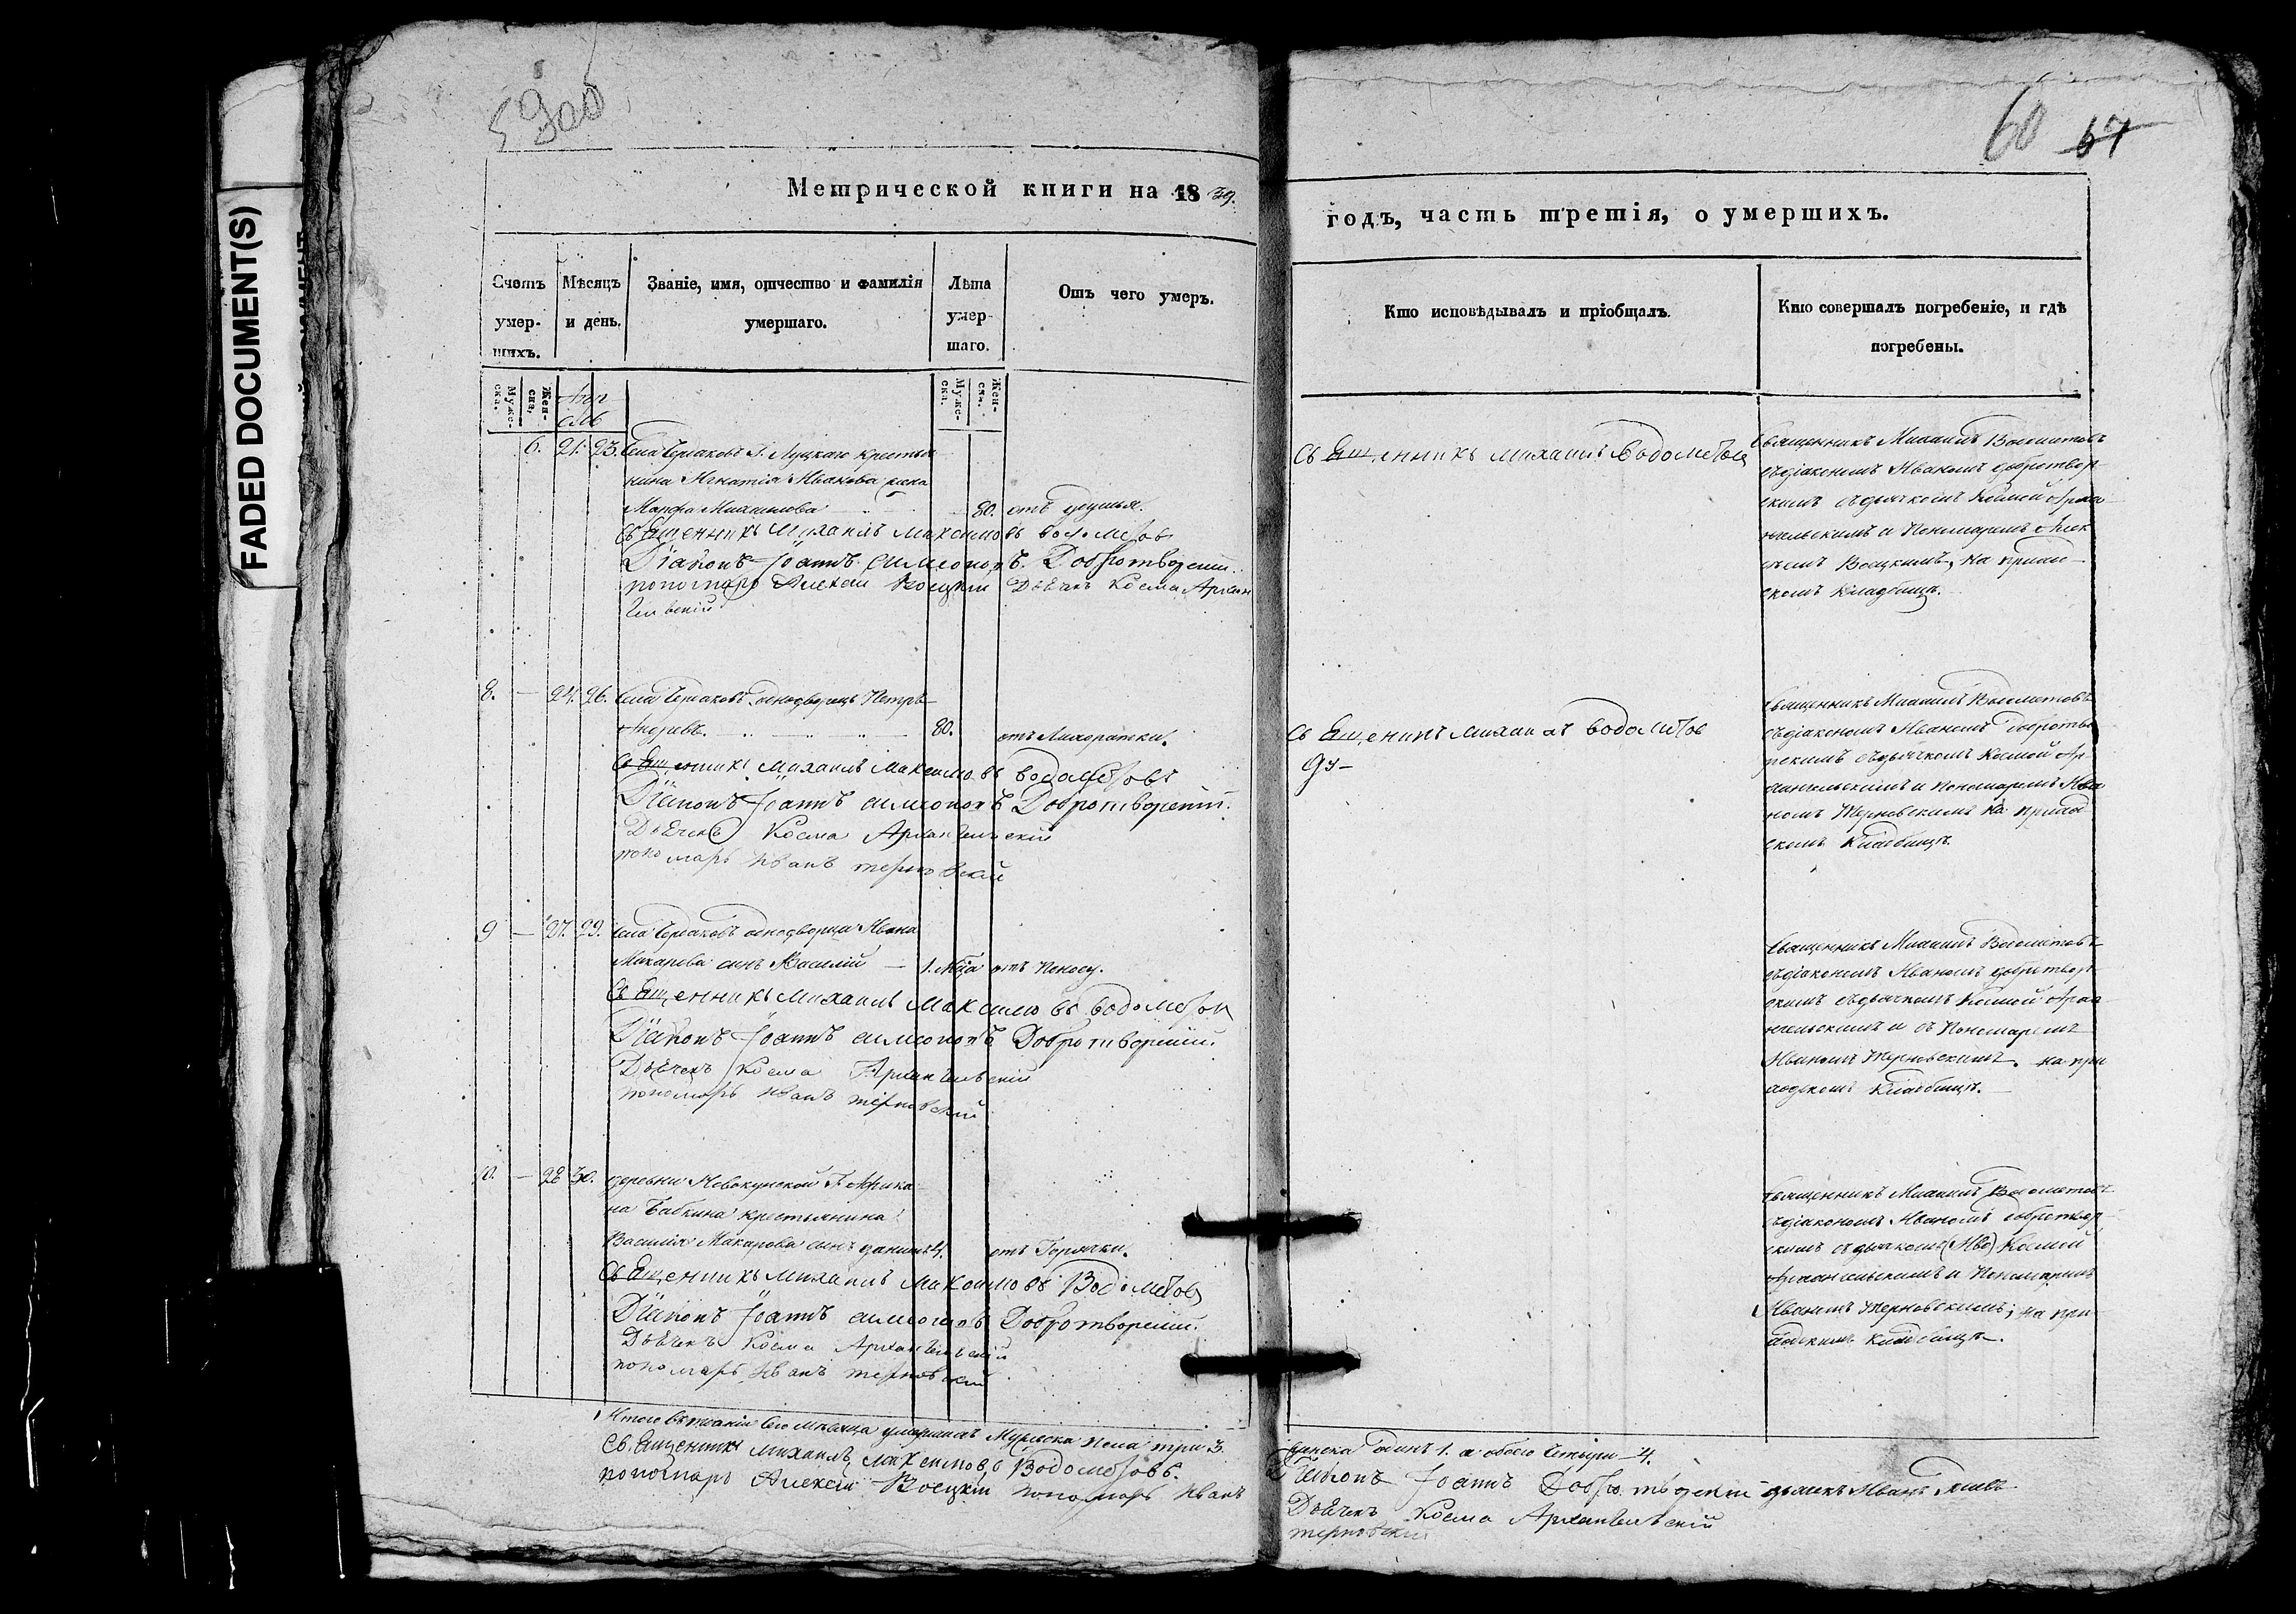 FADED DOCUMENT(S)
60 67
Метрической книги на 1839.
годъ, часть третія, о умершихъ.
Счетъ умер-шихъ.
Мѣсяцъ и день.
Званіе, имя, отчество и фамилія умершаго.
Лѣта умер-шаго.
Отъ чего умеръ.
Кто исповѣдывалъ и пріобщалъ.
Кто совершалъ погребеніе, и гдѣ погребены.
Муже-ска.
Жен-ска.
Муже-ска.
Жен-ска.
6. 21. 23. Села
крестья
нина Игнатія Иванова
Марфа Михаилова 80. отъ удушья.
Священникъ Михаилъ Максимовъ Водометовъ
Діаконъ Іоаннъ Симеоновъ Добротворский.
пономарь Алексей Воецкій Дьячекъ Косма Архан
гельскій
Священникъ Михаилъ Водометовъ
Священникъ Михаилъ Водометовъ
съ діакономъ Иваномъ Добротвор
скимъ съ дьячкомъ Космой Арха
нгельскимъ и Пономаремъ Алек
сѣемъ Воецкимъ, на приход
скомъ кладбищѣ.
8. — 24. 26. Села однодворецъ Петръ
80. отъ Лихоратки.
Священникъ Михаилъ Максимовъ Водометовъ
Діаконъ Іоаннъ Симеоновъ Добротворский.
Дьячекъ Косма Архангельский
пономарь Иванъ Терновский
Священникъ Михаилъ Водометов
Священникъ Михаилъ Водометовъ
съ діакономъ Иваномъ Добротво
рскимъ съ дьячкомъ Космой Ар
хангельскимъ и Пономаремъ Ива
номъ Терновскимъ на приход
скомъ Кладбищѣ.
9 — 27. 29. Села однодворца Ивана
Макарова сынъ Василій — 1. мѣца отъ Поносу.
Священникъ Михаилъ Максимовъ Водометов
Діаконъ Іоаннъ Симеоновъ Добротворский.
Дьячекъ Косма Архангельскій
пономарь Иванъ Терновский
Священникъ Михаилъ Водометовъ
съ діакономъ Иваномъ Добротвор
скимъ съ дьячкомъ Космой Арха
нгельскимъ и съ Пономаремъ
Иваномъ Терновскимъ. на при
ходскомъ Кладбищѣ.
10. — 28 30. деревни
на Бабкина крестьянина
Василія Макарова сынъ Данилъ 4. отъ Горячки.
Священникъ Михаилъ Максимовъ Водометовъ
Діаконъ Іоаннъ Симеоновъ Добротворский.
Дьячекъ Косма Архангельскій
пономарь Иванъ Терновский
Священникъ Михаилъ Водометовъ
съ діакономъ Иваномъ Добротвор
скимъ съ дьячкомъ (Ива) Космой
Архангельскимъ и Пономаремъ
Иваномъ Терновскимъ; на при
ходскомъ Кладбищѣ.
Итого въ теченіи сего мѣсяца умершихъ Мужеска пола три 3.
женска одинъ 1. а обоего четыри 4.
Священникъ Михаилъ Максимовъ Водометовъ.
Діаконъ Іоаннъ Добротворский
пономарь Алексій Воецкій пономарь Иванъ
Дьячекъ Косма Архангельскій
терновский